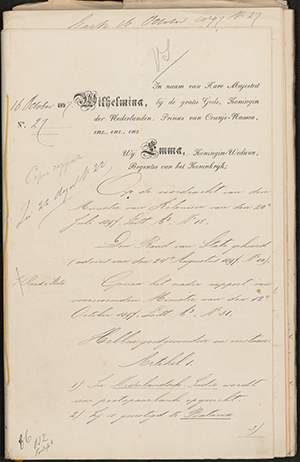 16 October 1897 N. 27
VS
16 October
N°. 27
Wilhelmina,
In naam van Hare Majesteit
bij de gratie Gods, Koningin
der Nederlanden, Prinses van Oranje-Nassau,
enz., enz., enz.
Wij Emma, Koningin-Weduwe,
Regentes van het Koninkrijk;
Op de voordracht van den
Minister van Koloniën van den 20en
Juli 1897, Litt. N°. 15.
Den Raad van State gehoord
(advies van den 24en Augustus 1897, N°. 20);
Gezien het nader rapport van
voornoemden Minister van den 12en
October 1897, Litt. N°. 31.
Hebben goedgevonden en verstaan:
Artikel 1.
1) In Nederlandsch-Indië wordt
eene postspaarbank opgericht
2) Zij is gevestigd te Batavia
3)
86